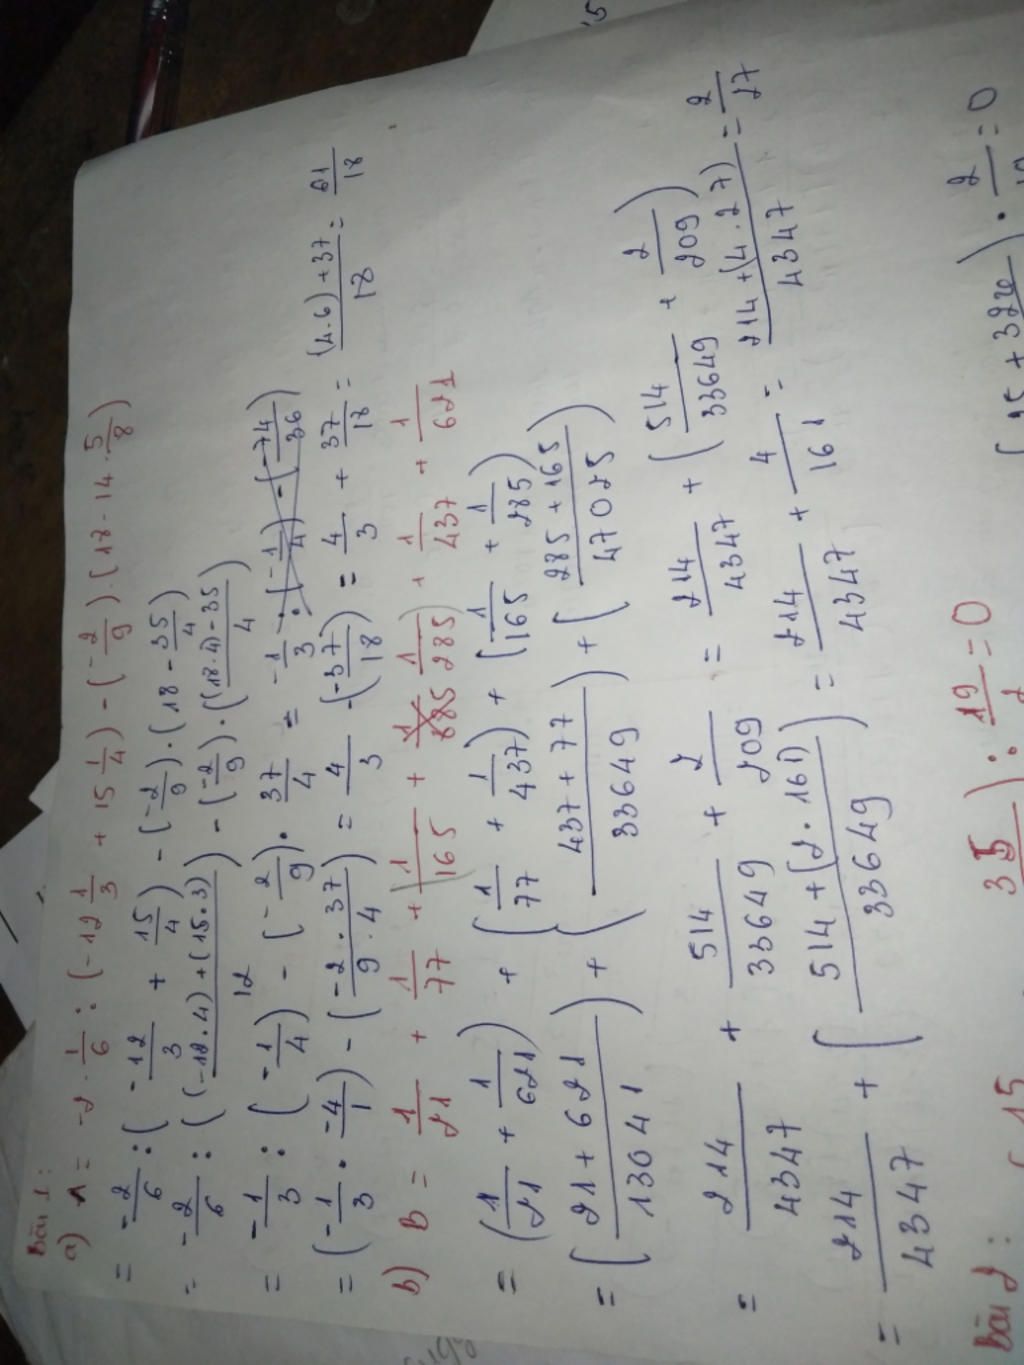 Bài 1:
a) A = -2 . 1/6 : (-12 1/3 + 15 1/4) - (-2/9) . (18 - 14 . 5/8)
= -2/6 : (-12/3 + 15/4) - (-2/9) . (18 - 35/4)
= -2/6 : ((-12.4)+(15.3)/12) - (-2/9) . ((18.4)-35/4)
= -1/3 : (-1/4) - (-2/9) . 37/4 = -1/3 : (-1/4) - (-74/36)
= (-1/3 . -4/1) - (-2.37/9.4) = 4/3 - (-37/18) = 4/3 + 37/18 = (4.6)+37/18 = 61/18
b) B = 1/21 + 1/77 + 1/165 + 1/285 + 1/437 + 1/621
= (1/21 + 1/621) + (1/77 + 1/437) + (1/165 + 1/285)
= (21+621/13041) + (437+77/33649) + (285+165/47025)
= 214/4347 + 514/33649 + 2/209 = 214/4347 + (514/33649 + 2/209)
= 214/4347 + (514+(2.161)/33649) = 214/4347 + 4/161 = 214+(4.27)/4347 = 2/27
Bài 2:
= 0
= 0